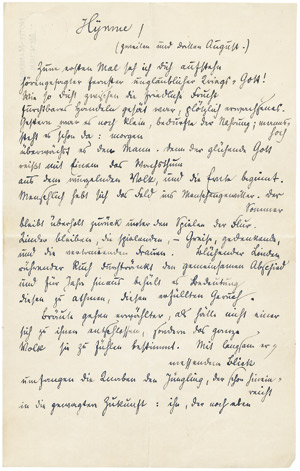 Hymne I
(zweiten und dritten August.)
Zum ersten Mal seh ich Dich aufstehn
hörengesagter fernster unglaublicher Kriegs-Gott!
Wie so dicht zwischen die friedliche Frucht
furchtbares Handeln gesät war, plötzlich erwachsenes.
Gestern war es noch klein, bedurfte der Nahrung, mannshoch
steht es schon da: morgen
überwächst es den Mann. Denn der glühende Gott
reißt mit Einem das Wachstum
aus dem wurzelnden Volk, und die Ernte beginnt.
Menschlich hebt sich das Feld ins Menschengewitter. Der
Sommer
bleibt überholt zurück unter den Spielen der Flur.
Kinder bleiben, die spielenden, Greise, gedenkende,
und die vertrauenden Frauen. Blühender Linden
rührender Ruch durchtränkt den gemeinsamen Abschied
und für Jahre hinaus behält es Bedeutung
diesen zu athmen, diesen erfüllten Geruch.
Bräute gehen erwählter, als hätte nicht Einer
sich zu ihnen entschlossen, sondern das ganze
Volk sie zu fühlen bestimmt. Mit langsam er-
messendem Blick
umfangen die Knaben den Jüngling, der schon hinein-
reicht
in die gewagtere Zukunft: ihn, der noch eben